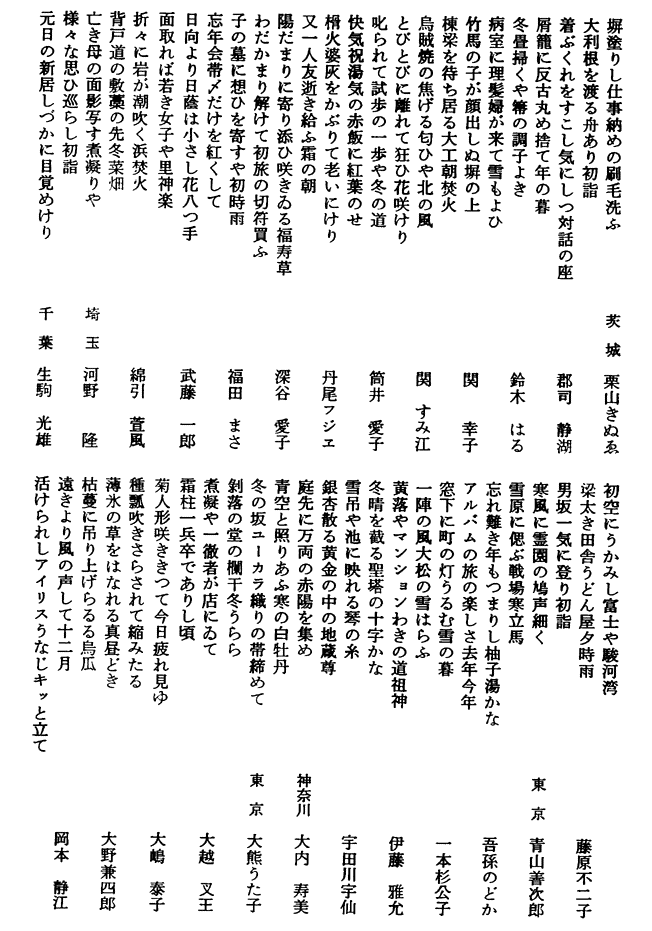 塀塗りし仕事納めの刷毛洗ふ
大利根を渡る舟あり初詣
茨城 栗山きぬゑ
着ぶくれをすこし気にしつ対話の座
屑籠に反古丸め捨て年の暮
郡司 静湖
冬畳掃くや箒の調子よき
病室に理髪婦が来て雪もよひ
鈴木 はる
竹馬の子が顔出しぬ塀の上
棟梁を待ち居る大工朝焚火
関 幸子
烏賊焼の焦げる匂ひや北の風
とびとびに離れて狂ひ花咲けり
関 すみ江
叱られて試歩の一歩や冬の道
快気祝湯気の赤飯に紅葉のせ
筒井 愛子
榾火婆灰をかぶりて老いにけり
又一人友逝き給ふ霜の朝
丹尾フジエ
陽だまりに寄り添ひ咲きゐる福寿草
わだかまり解けて初旅の切符買ふ
深谷 愛子
子の墓に想ひを寄すや初時雨
忘年会帯〆だけを紅くして
福田 まさ
日向より日蔭は小さし花八つ手
面取れば若き女子や里神楽
武藤 一郎
折々に岩が潮吹く浜焚火
背戸道の敷藁の先冬菜畑
綿引 萱風
亡き母の面影写す煮凝りや
様々な思ひ巡らし初詣
埼玉 河野 隆
元日の新居しづかに目覚めけり
千葉 生駒 光雄
初空にうかみし富士や駿河湾
梁太き田舎うどん屋夕時雨
藤原不二子
男坂一気に登り初詣
寒風に霊園の鳩声細く
東京 青山善次郎
雪原に偲ぶ戦場寒立馬
忘れ難き年もつまりし柚子湯かな
吾孫のどか
アルバムの旅の楽しさ去年今年
窓下に町の灯うるむ雪の暮
一本杉公子
一陣の風大松の雪はらふ
黄落やマンションわきの道祖神
伊藤 雅允
冬晴を截る聖塔の十字かな
雪吊や池に映れる琴の糸
宇田川宇仙
銀杏散る黄金の中の地蔵尊
庭先に万両の赤陽を集め
神奈川 大内 寿美
青空と照りあふ寒の白牡丹
冬の坂ユーカラ織りの帯締めて
東京 大熊うた子
剝落の堂の欄干冬うらら
煮凝や一徹者が店にゐて
大越 叉王
霜柱一兵卒でありし頃
菊人形咲ききつて今日疲れ見ゆ
大嶋 泰子
種瓢吹きさらされて縮みたる
薄氷の草をはなれる真昼どき
大野兼四郎
枯蔓に吊り上げらるる烏瓜
遠きより風の声して十二月
岡本 静江
活けられしアイリスうなじキッと立て